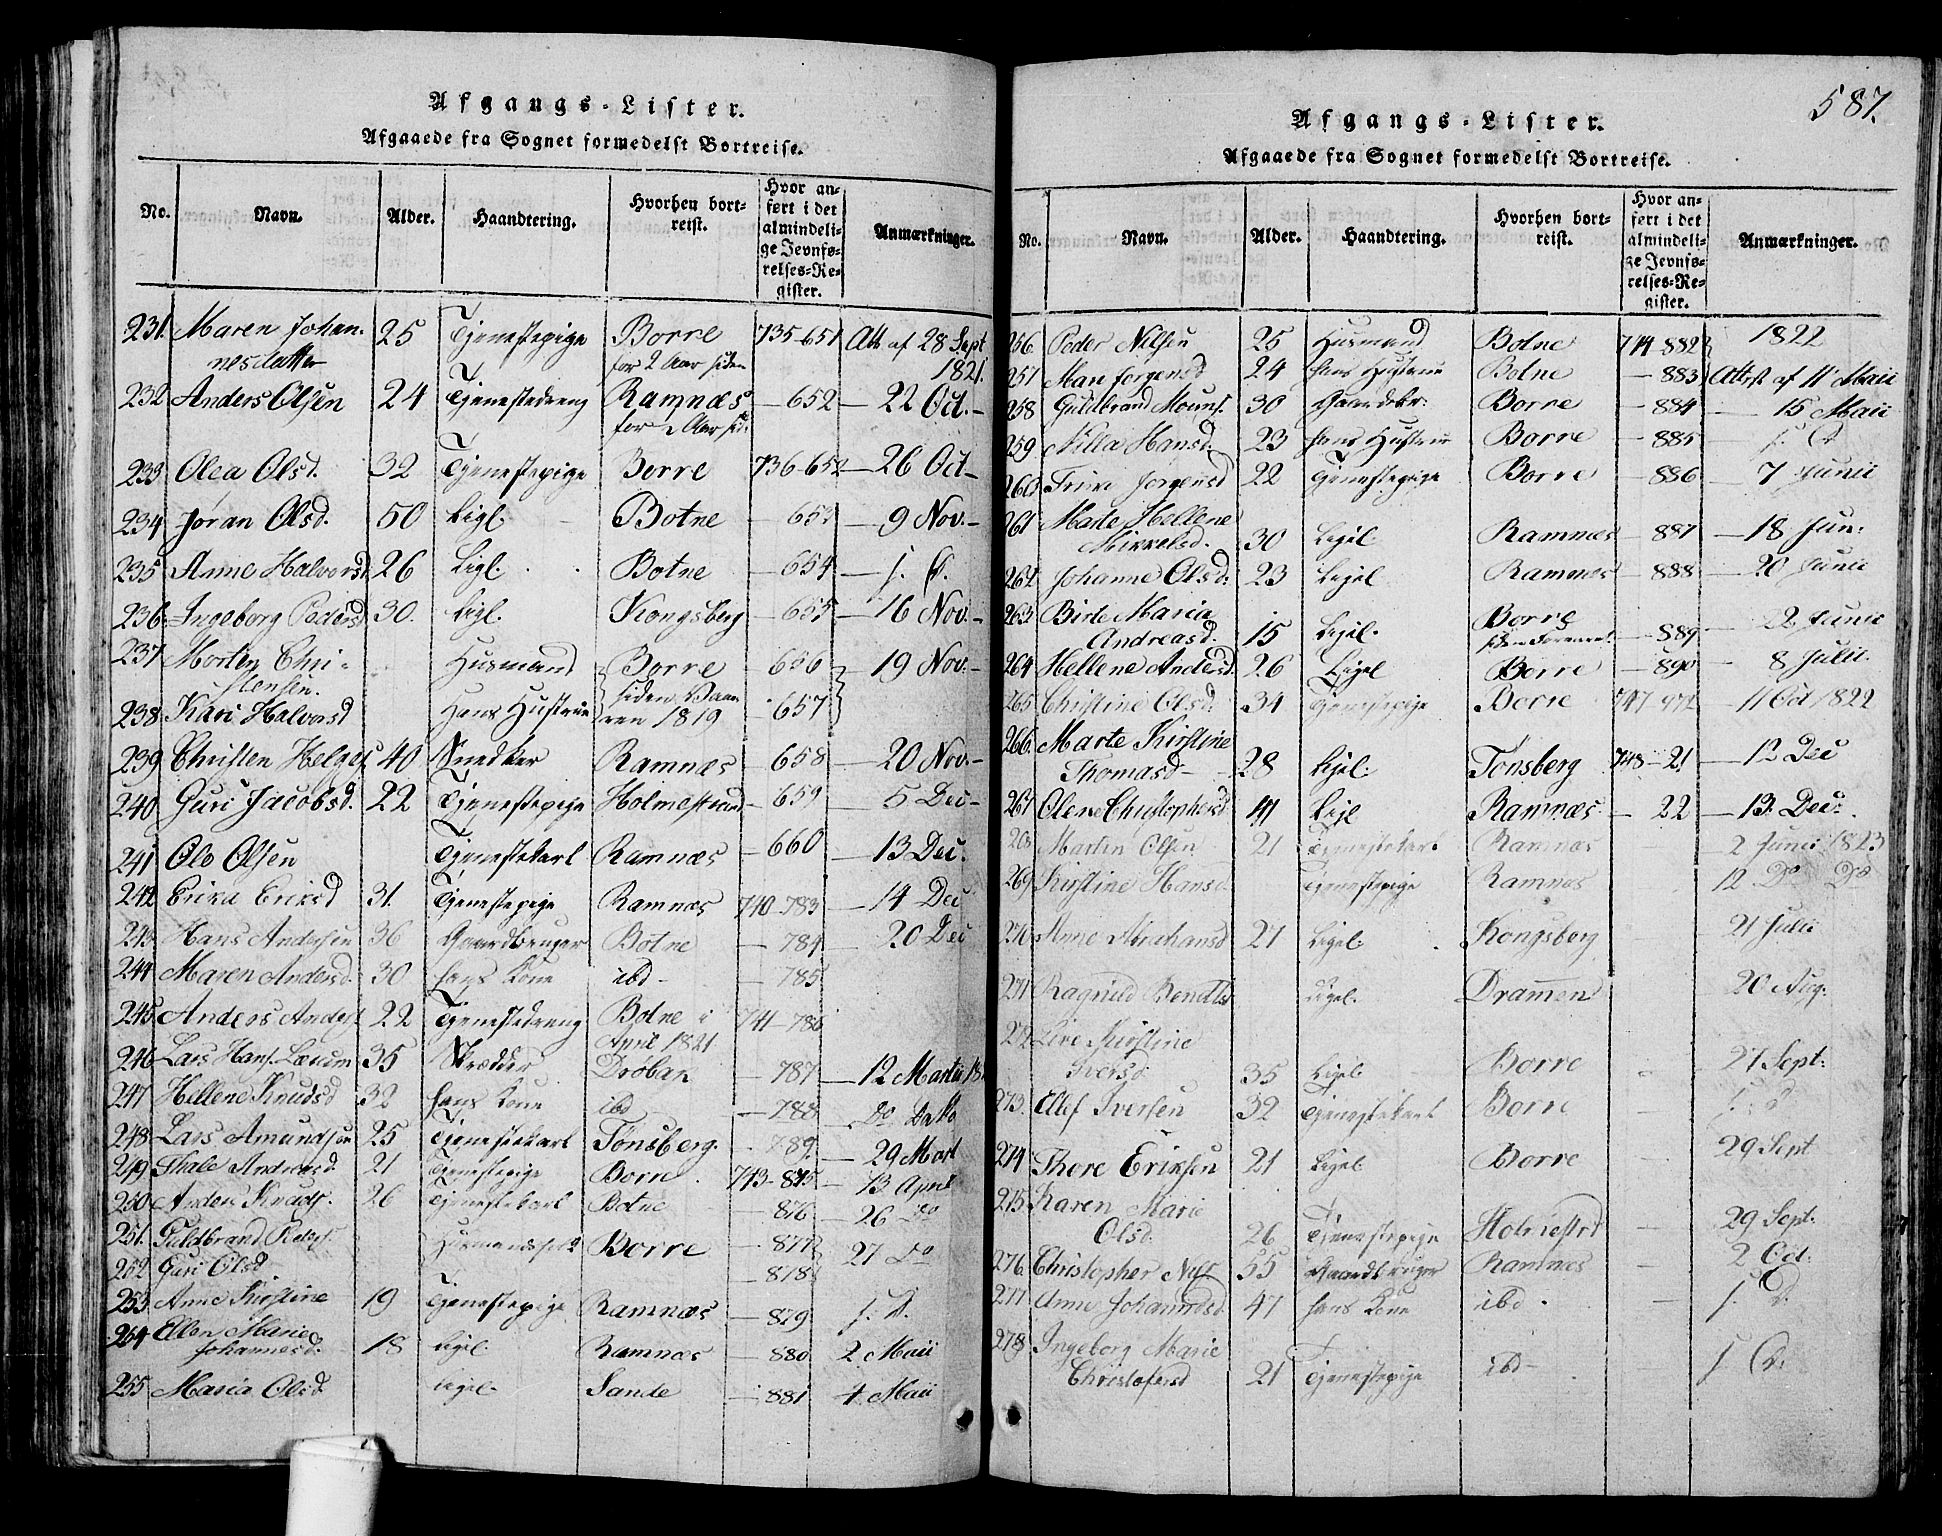 Afgangs-Lister.
Afgaaede fra Sognet formedelst Bortreise.
No. Navn. Alder. Haandtering. Hvorhen bortreist. Hvor anført i det almindelige Jevnførelses-Register. Anmærkninger.
231. Maren Johan- 25 Tjenestepige Borre 735-651 Att. af 28 Sept
nesdatter for 2 Aar siden 1821.
232 Anders Olsen 24 Tjenestedreng Ramnæs - 652 - 22 Oct. -
for 2 Aar sid.
233 Olea Olsd. 32 Tjenestepige Borre 736-652 - 26 Oct -
234 Joran Olsd. 50 Ligl. Botne - 653 - 9 Nov. -
235 Anne Halvorsd 26 Ligl. Botne - 654 - s. D.
236 Ingeborg Pedersd 30. Ligl. Kongsberg - 655 - 16 Nov. -
237 Morten Chri- Husmand Borre - 656 - 19 Nov. -
stensen. siden Vaa-
238 Kari Halvorsd Hans Hustrue ren 1819 - 657
239 Christen Helges 40 Snedker Ramnæs - 658 - 20 Nov. -
240 Guri Jacobsd. 22 Tjenestepige Holmestrand - 659 - 5 Dec -
241 Ole Olsen Tjenestekarl Ramnæs - 660 - 13 Dec.
242 Erika Eriksd 31. Tjenestepige Ramnæs 740-783 - 14 Dec
243 Hans Andersen 36 Gaardbruger Botne - 784 - 20 Dec
244 Maren Andersd. 30 hans Kone ibd - - 785
245 Anders Anders 22 Tjenestedreng Botne i 741-786
April 1821
246 Lars Hans. 35 Skredder Drøbak - 787 - 12 Martii 18
247 Hellene Knudsd 32 hans Kone ibd - 788 Do Dato
248 Lars Amundsen 25 Tjenestekarl Tønsberg. - 789 - 29 Mart
249 Thale Andreasd. 21 Tjenestepige Borre. 743-875 - 13 April
250 Anders Knuds. 26 Tjenestekarl Botne - 876 - 26 Do
251. Guldbrand Husmandsfolk Borre - 877 27 Do
252 Guri Olsd - 878
253 Anne Kirstine 19 Tjenestepige Ramnæs - 879 s. D.
254 Ellen Marie
Johannesd. 18 Ligl. Ramnæs - 880 2 Maii
255 Maria Olsd Ligel. Sande - 881 4 Maii
587.
Afgangs-Lister.
Afgaaede fra Sognet formedelst Bortreise.
No. Navn. Alder. Haandtering. Hvorhen bortreist. Hvor anført i det almindelige Jevnførelses-Register. Anmærkninger.
256. Peder Nilsen 25 Husmand Botne 744-882 1822
257 Mari Jorgensd 24 hans Hustrue Botne - 883 Attest af 11 Maii
258 Guldbrand Mouns. 30 Gaardbr. Borre - 884 - 15 Maii
259 Nilla Hansd. 23 hans Hustrue Borre - 885 s. D
260 Trine Jorgensd 22 Tjenestepige Borre - 886 - 7 Junii
261 Marte Hellene
Mikkelsd. 30 Ligel. Ramnæs - 887 - 18 Jun:
262 Johanne Olsd: 23 Ligel. Ramnæs - 888 - 20 Junii
263 Birte Maria Borre
Andreasd. 15 Ligel. - 889 - 22 Junii
264 Hellene Andersd 26 Ligel Borre - 890 - 8 Julii.
265 Christine Olsd. 34 Tjenestepige Borre 747-972 - 11 Oct 1822
266. Marte Kirstine
Thomasd - 28 Ligel: Tønsberg 748-21 - 12 Dec
267 Olene Christophersd 41 Ligl Ramnæs - 22 - 13 Dec.
268 Martin Olsen 21 Tjenestekarl Ramnæs 2 Junii 1823
269 Kirstine Hansd. Tjenestepige Ramnæs 12 Do Do
270 Anne Abrahamsd 27 Ligel. Kongsberg 21 Julii
271 Ragnild Bendts Ligel. Dramen 20 Aug.
272 Live Kirstine
Iversd 35 Ligel. Borre 27 Sept:
273. Ellef Iversen 32 Tjenestekarl Borre s. d
274 Thore Eriksen 21 Ligel Borre 29 Sept
275 Karen Marie
Olsd. 26 Tjenestepige Holmestrd - 29 Sept.
276. Christopher Nils. 55 Gaardbruger Ramnæs - 2 Oct.
277 Anne Johannesd. 47 hans Kone ibd. - s. D.
278 Ingeborg Marie
Christofersd 21 Tjenestepige ibd - - s D.